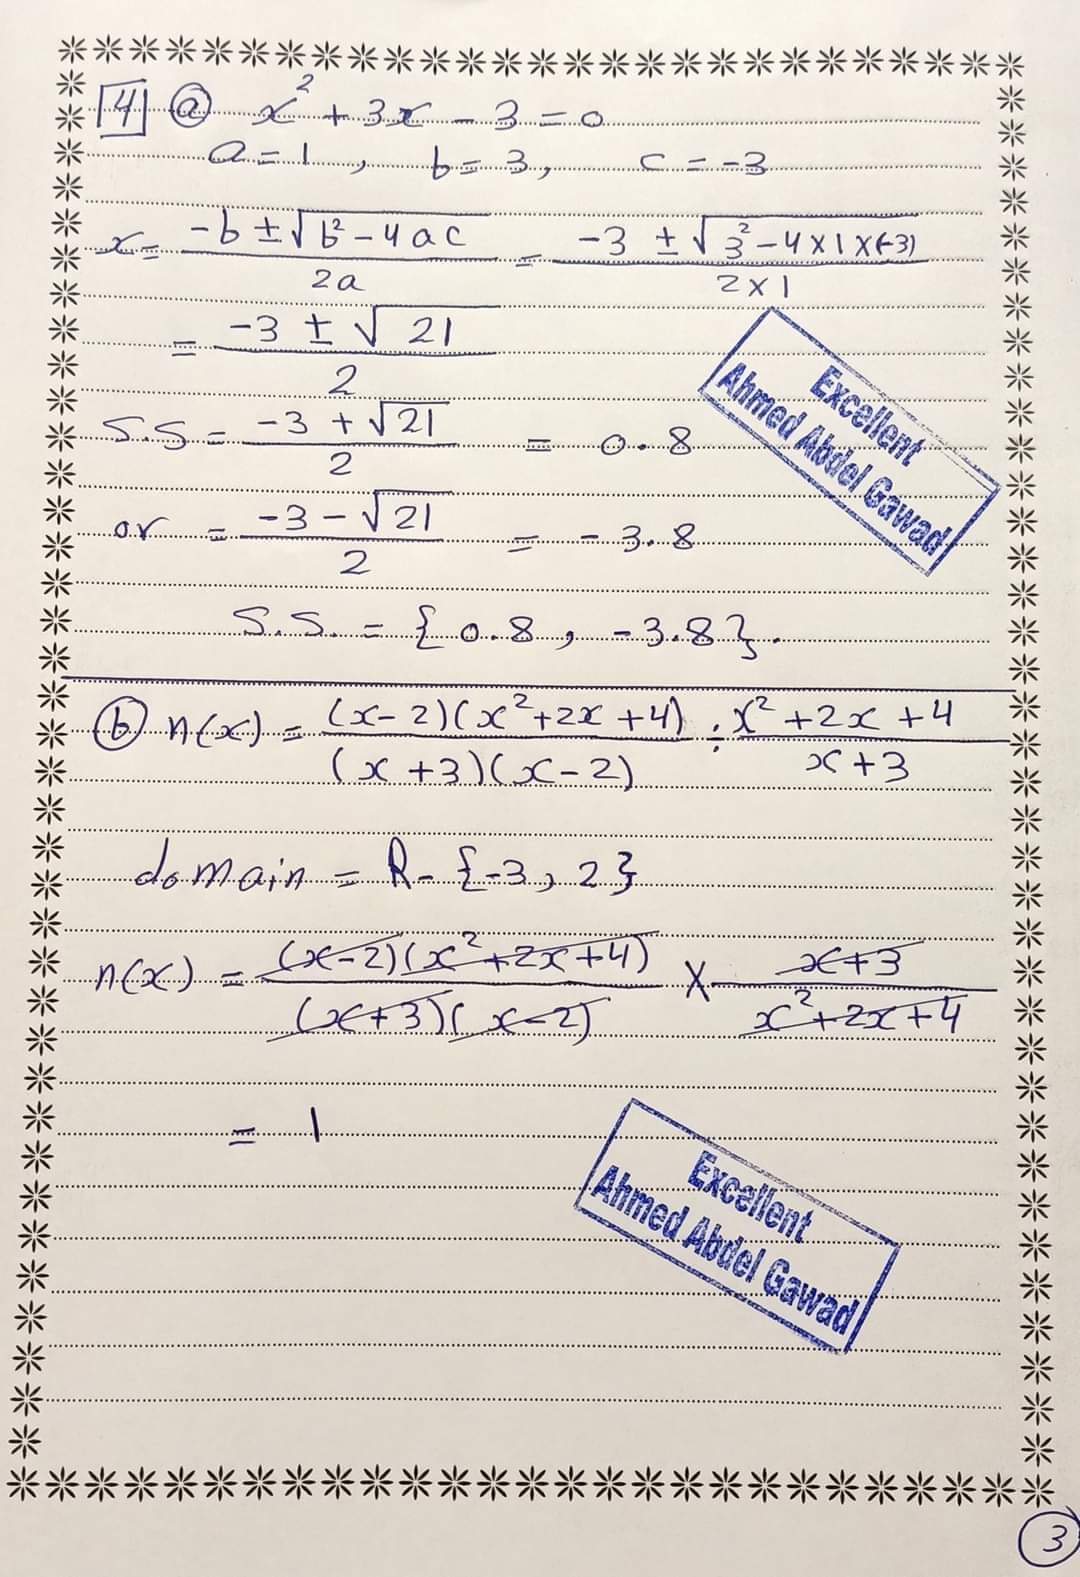 4 (a) x² + 3x - 3 = 0
a = 1 , b = 3 , c = -3
x = (-b ± √(b² - 4ac)) / 2a = (-3 ± √(3² - 4×1×(-3))) / 2×1
= (-3 ± √21) / 2
S.S = (-3 + √21) / 2 = 0.8
or = (-3 - √21) / 2 = -3.8
S.S. = {0.8 , -3.8}.
Excellent
Ahmed Abdel Gawad
(b) n(x) = (x-2)(x²+2x+4) / (x+3)(x-2) ÷ (x²+2x+4) / (x+3)
domain = R - {-3, 2}
n(x) = (x-2)(x²+2x+4) / (x+3)(x-2) × (x+3) / (x²+2x+4)
= 1
Excellent
Ahmed Abdel Gawad
3